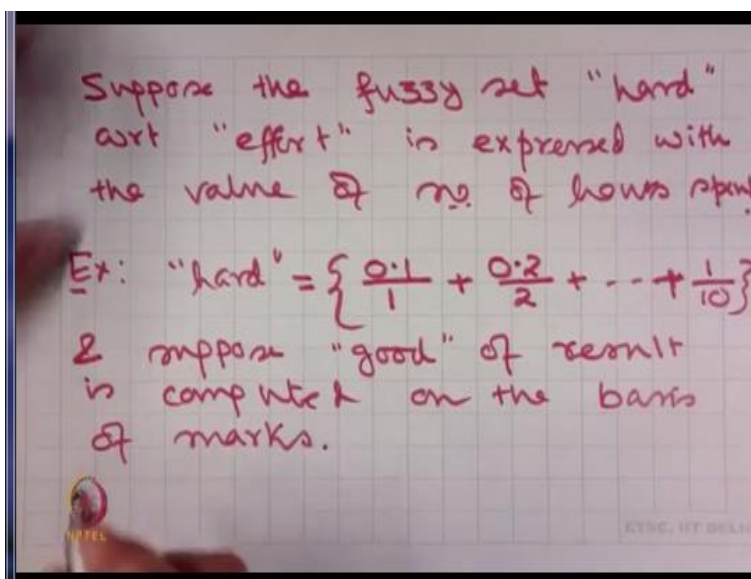 Suppose the fuzzy set "hard"
wrt "effort" is expressed with
the value of no. of hours spent
Ex: "hard" = { 0.1/1 + 0.2/2 + --- + 1/10 }
& suppose "good" of result
is computed on the basis
of marks.
NPTEL
ETSC, IIT DELHI